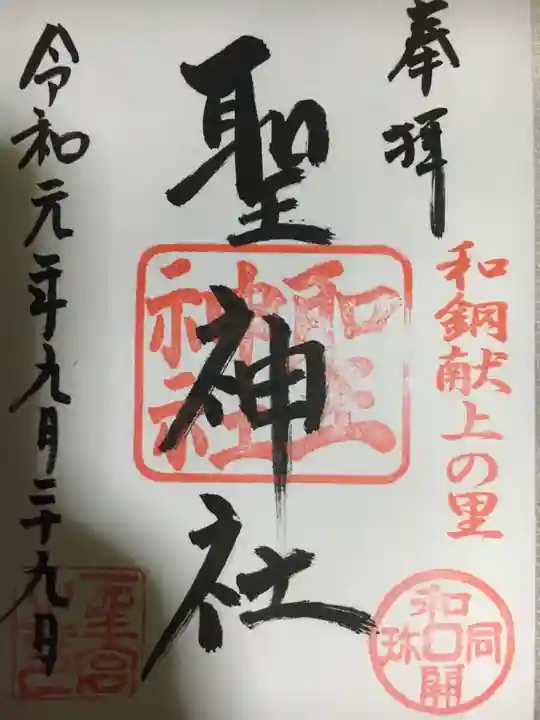 奉拝
和銅献上の里
和同開珎
聖神社
聖神社
令和元年九月二十九日